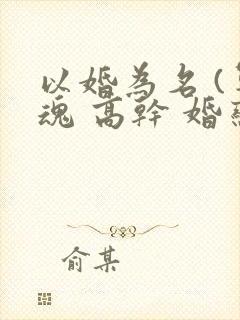 以婚為名(
魂 高幹 婚
俞某